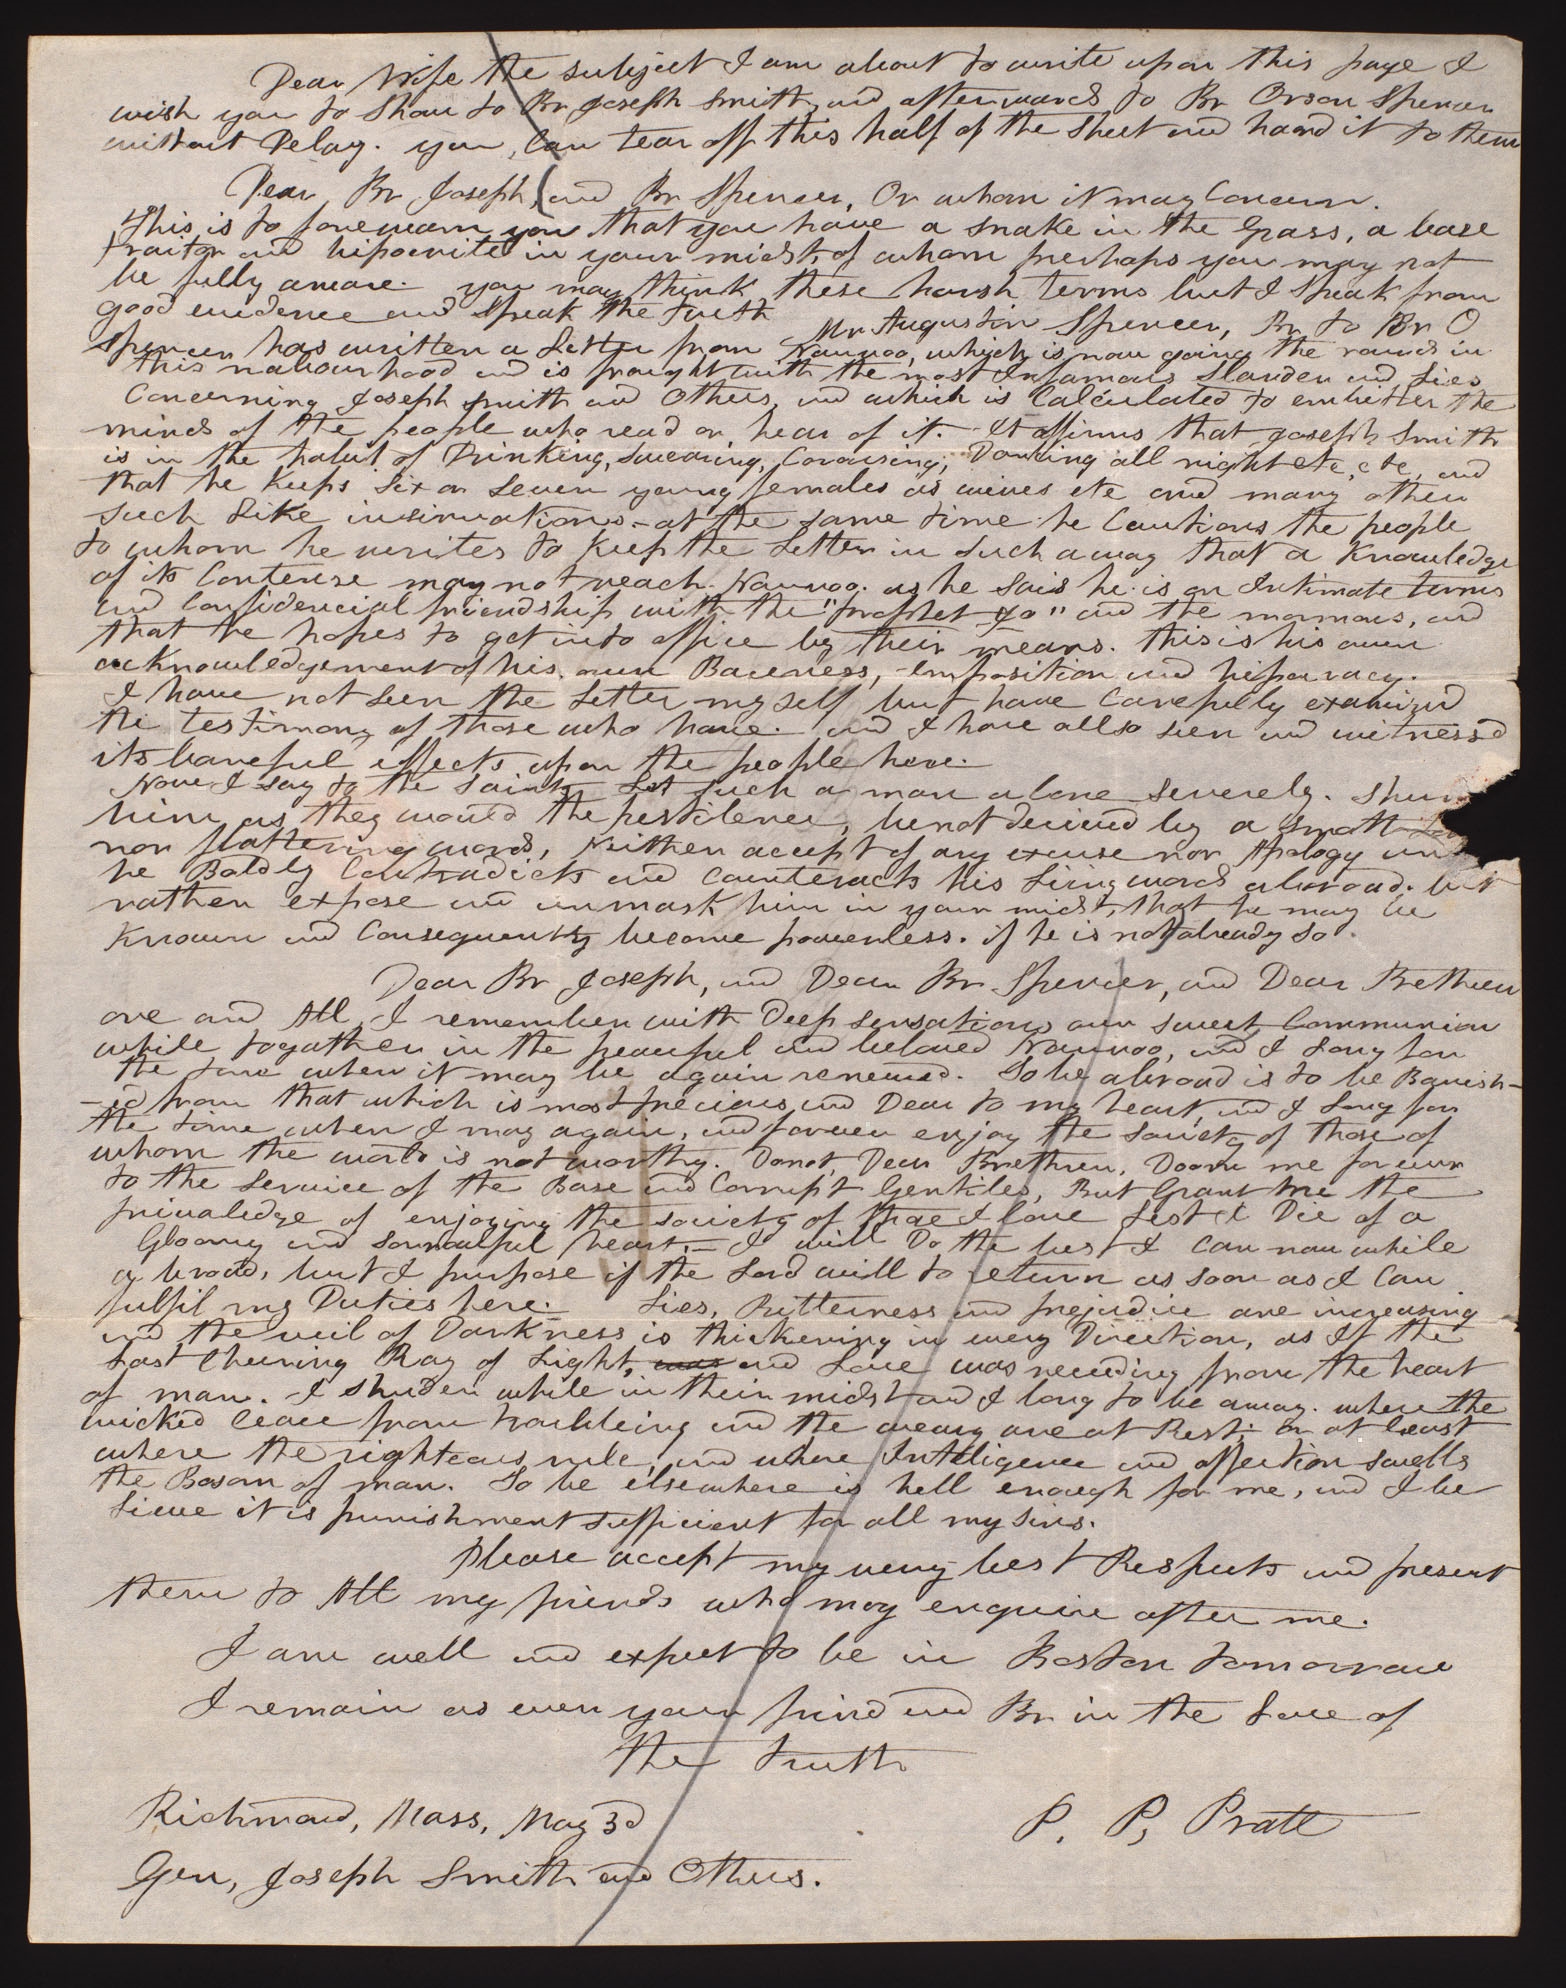 Dear Wife the subject I am about to write upon this page I
wish you to Show to Br Joseph Smith, and afterwards to Br Orson Spencer
without Delay. you, Can tear off this half of the Sheet and hand it to them
Dear Br Joseph, and Br Spencer, Or whom it may Concern.
This, is to forewarn you that you have a snake in the Grass, a base
traitor and hipocrite in your midst, of whom perhaps you may not
be fully aware. you may think these harsh terms but I Speak from
good evidence and Speak the truth
Mr Augustin Spencer, Br to Br O
Spencer has written a Letter from Nauvoo, which is now going the rounds in
this nabourhood and is fraught with the most Infamous Slander and Lies
Concerning Joseph Smith and Others, and which is Calculated to embitter the
minds of the people who read or hear of it. It affirms that Joseph Smith
is in the habit of Drinking, Swearing, Carousing, Dancing all night etc, etc, and
that he keeps six or seven young females as wives etc and many other
such like insinuations - at the same time he Cautions the people
to whom he writes to Keep the Letter in such a way that a Knowledge
of its Contense may not reach Nauvoo. as he Said he is on Intimate terms
and Confidencial friendship with the "prophet Jo" and the mormons, and
that he hopes to get into office by their means. this is his own
acknowledgement of his own Baseness, Imposition and hipocracy.
I have not seen the Letter my self but have Carefully examined
the testimony of those who have. and I have allso seen and witnessd
its baneful effects upon the people here.
Now I say to the Saints Let such a man alone severely. Shun
him as they would the pestilence, be not deceived by a smooth
nor flattering words, Neither accept of any excuse nor Apology
he Boldly Contradicts and counteracts his Liing words abroad. but
rather expose and unmask him in your midst, that he may be
Known and Consequently become powerless. if he is not already so.
Dear Br Joseph, and Dear Br Spencer, and Dear Brethren
one and All, I remember with Deep sensations our sweet Communion
while togather in the peaceful and beloved Nauvoo, and I Long for
the time when it may be again renewed. To be abroad is to be Banish-
-ed from that which is most precious and Dear to my heart, and I Long for
the time when I may again, and forever enjoy the Society of those of
whom the world is not worthy. Donot, Dear Brethren, Doom me forever
to the Service of the Base and Corrupt Gentiles, But Grant me the
privaledge of enjoying the society of those I love Lest I Die of a
Gloomy and sorrowful heart. — I will Do the best I can now while
a broad, but I purpose if the Lord will to return as soon as I Can
fulfil my Duties here. — Lies, Bitterness and prejudice are increasing
and the veil of Darkness is thickening in every Direction, as If the
Last Cheering Ray of Light, was and Love was receeding from the heart
of man. I shuder while in their midst and I long to be away. where the
wicked Ceace from troubleing and the weary are at Rest; or at Least
where the righteous rule, and where Inteligence and affection swells
the Bosom of man. To be elsewhere is hell enough for me, and I be
Lieve it is punishment sufficient for all my sins.
Please accept my very best Respects and present
them to All my friends who may enquire after me.
I am well and expect to be in Boston tomorrow
I remain as ever your friend and Br in the Love of
the truth
Richmond, Mass, May 3d
P. P, Pratt
Gen, Joseph Smith and Others.